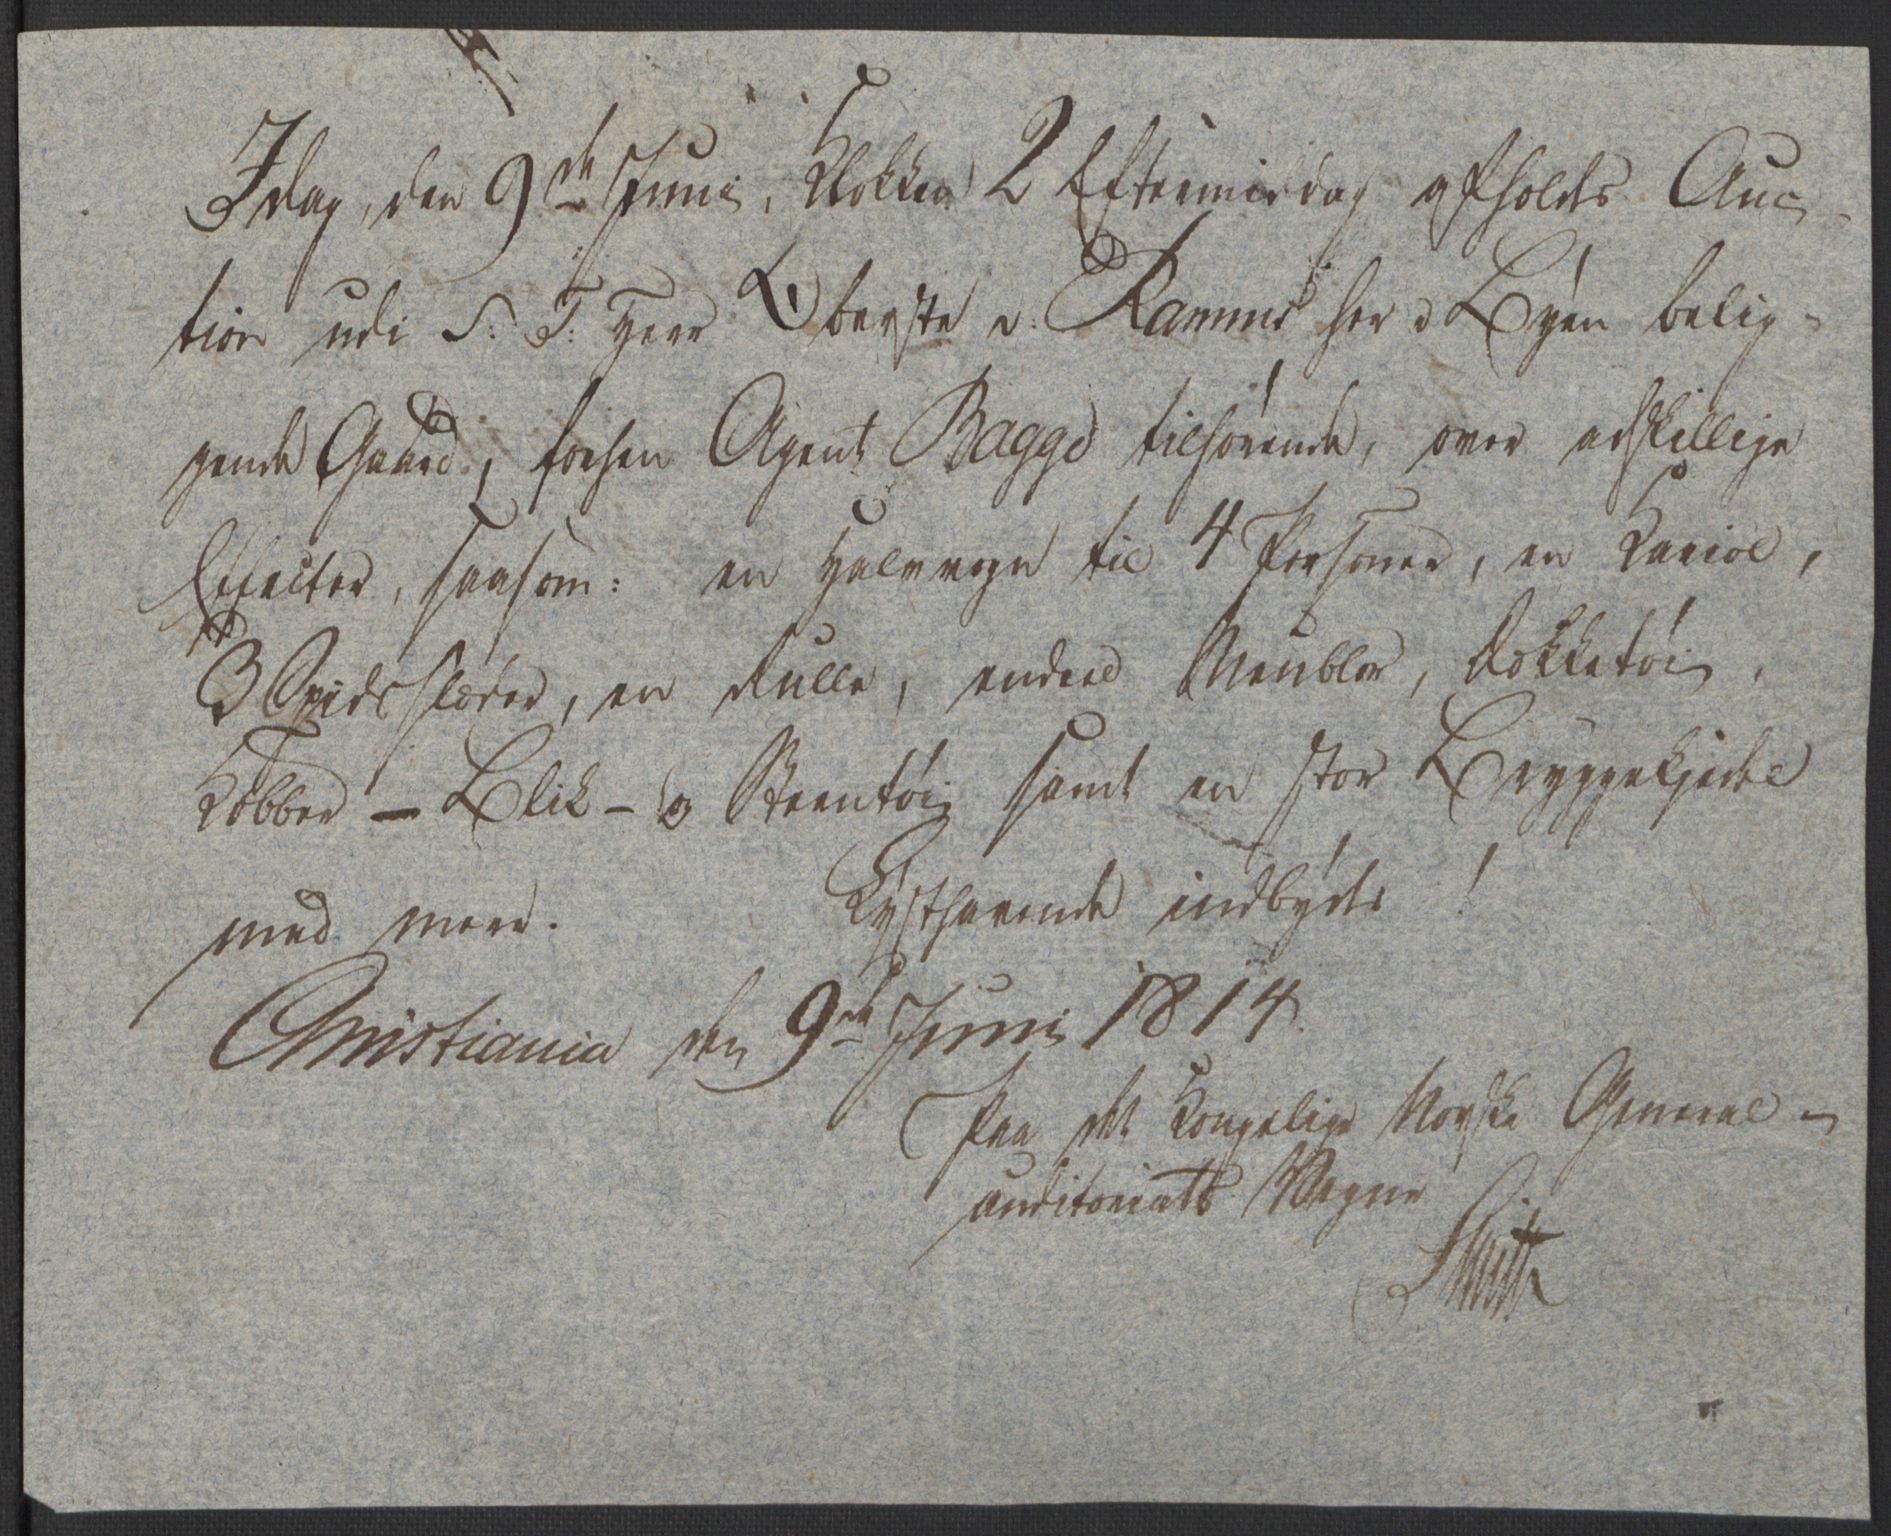 Idag, den 9de Juni, Klokken 2 Eftermiddag afholdes Auc-
tion udi S: T: Herr Oberste v: Ramms her i Byen belig-
gende Gaard, forhen Agent Bagge tilhørende, over adskillige
Effecter, saasom: en Halvvogn til 4 Personer, en Kariol,
3 Spidsslæder, en Rulle, endeel Meubler, Dækketøi,
Kobber – Blik – og Steentøi samt en stor Bryggekjedel
med mere. Lysthavende indbydes!
Christiania den 9de Juni 1814.
Paa det Kongelige Norske General-
auditoriats Vegne